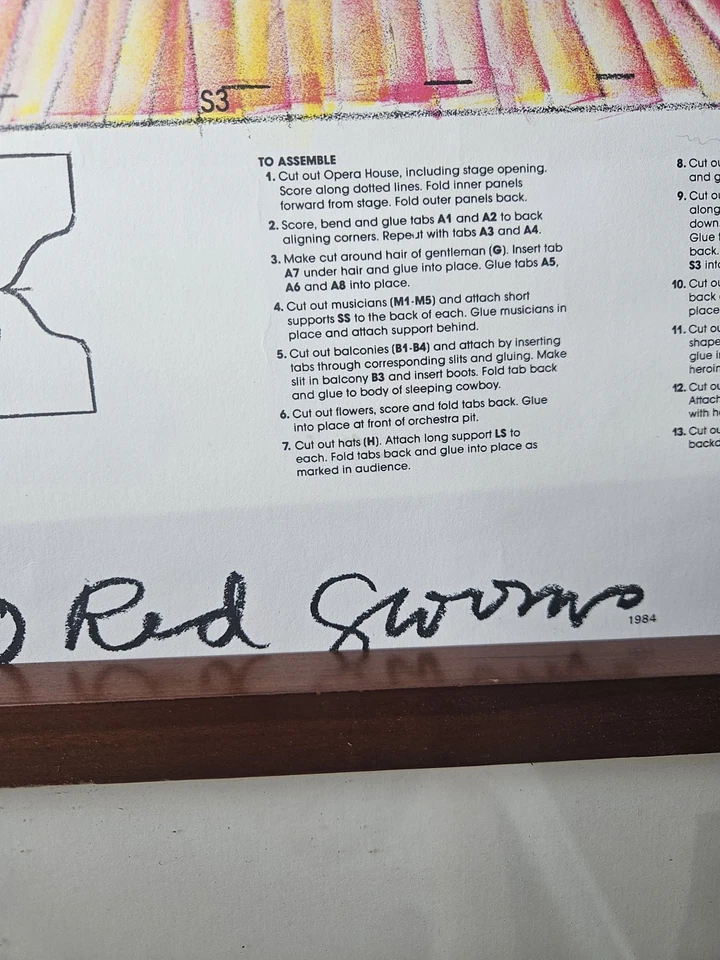 S3
TO ASSEMBLE
1. Cut out Opera House, including stage opening.
Score along dotted lines. Fold inner panels
forward from stage. Fold outer panels back.
2. Score, bend and glue tabs A1 and A2 to back
aligning corners. Repeat with tabs A3 and A4.
3. Make cut around hair of gentleman (G). Insert tab
A7 under hair and glue into place. Glue tabs A5,
A6 and A8 into place.
4. Cut out musicians (M1-M5) and attach short
supports SS to the back of each. Glue musicians in
place and attach support behind.
5. Cut out balconies (B1-B4) and attach by inserting
tabs through corresponding slits and gluing. Make
slit in balcony B3 and insert boots. Fold tab back
and glue to body of sleeping cowboy.
6. Cut out flowers, score and fold tabs back. Glue
into place at front of orchestra pit.
7. Cut out hats (H). Attach long support LS to
each. Fold tabs back and glue into place as
marked in audience.
8. Cut
and
9. Cut
along
down
Glue
back.
S3
10. Cut
back
place
11. Cut
shape
glue
12. Cut
Attach
with
13. Cut
Red Grooms
1984